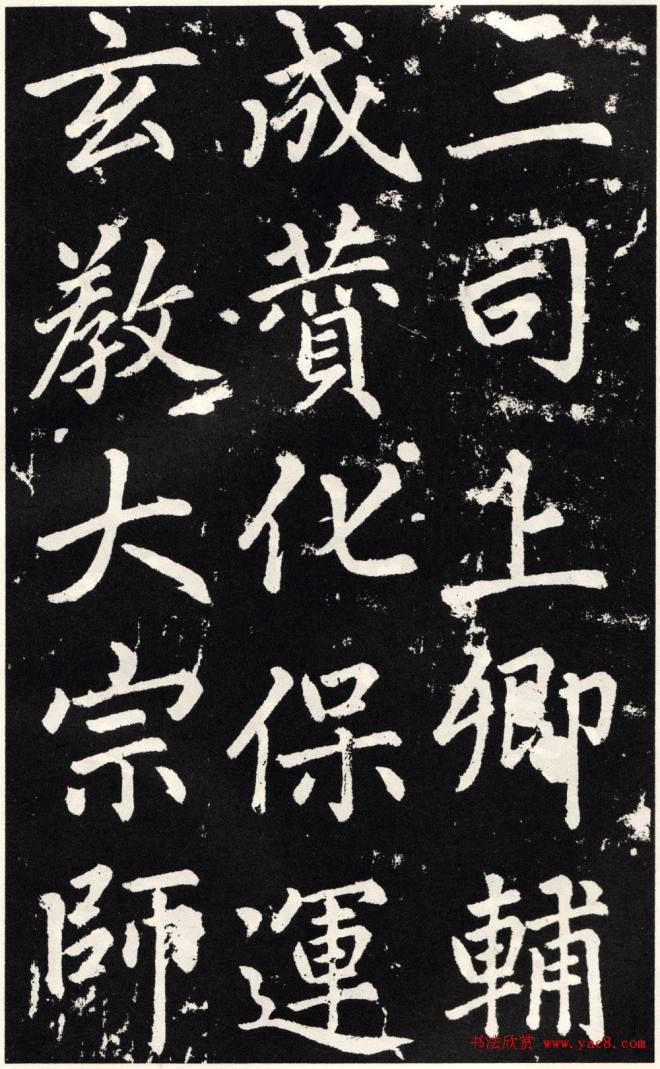 三司上卿輔
成賛化保運
玄教大宗師
书法欣赏 www.yac8.com